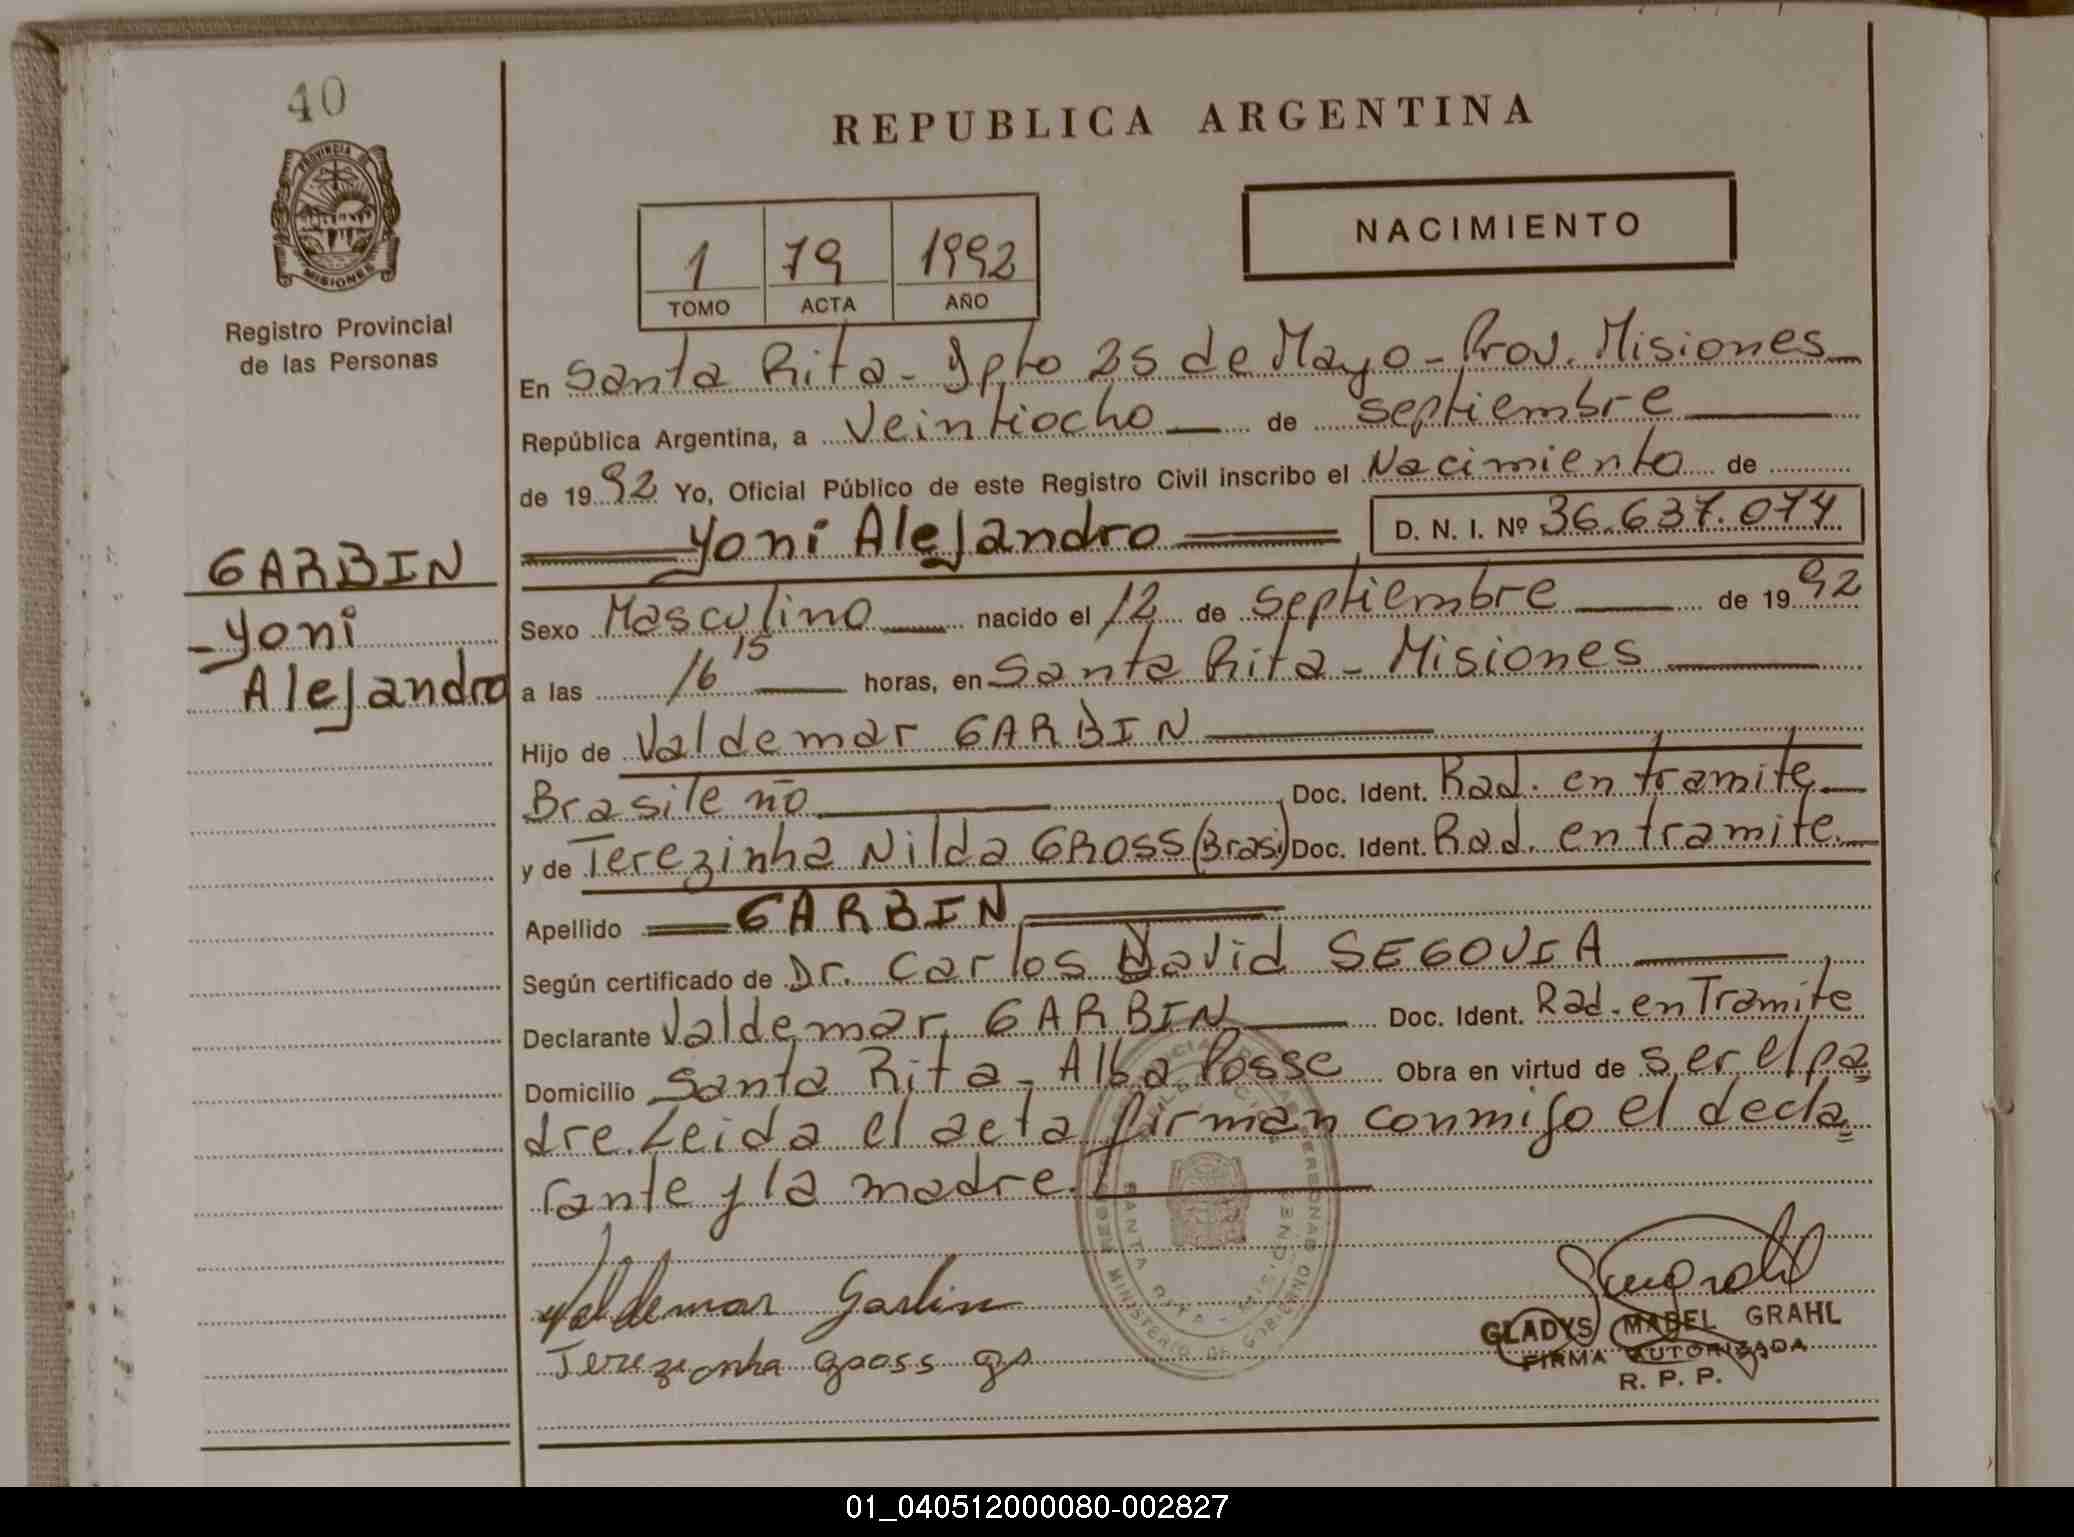 40
PROVINCIA DE
MISIONES
Registro Provincial
de las Personas
GARBIN
Yoni
Alejandro
REPUBLICA ARGENTINA
NACIMIENTO
1 79 1992
TOMO ACTA AÑO
En Santa Rita - Dpto 25 de Mayo - Prov. Misiones
República Argentina, a Veintiocho de septiembre
de 1992 Yo, Oficial Público de este Registro Civil inscribo el Nacimiento de
Yoni Alejandro D. N. I. Nº 36.637.074
Sexo Masculino nacido el 12 de septiembre de 1992
a las 16 15 horas, en Santa Rita - Misiones
Hijo de Valdemar GARBIN
Brasileño Doc. Ident. Rad. en tramite
y de Terezinha Nilda GROSS (Brasi) Doc. Ident. Rad. en tramite
Apellido GARBIN
Según certificado de Dr. Carlos David SEGOVIA
Declarante Valdemar GARBIN Doc. Ident. Rad. en Tramite
Domicilio Santa Rita - Alba Posse Obra en virtud de ser el pa
dre. Leida el acta firman conmigo el decla
rante y la madre.
Valdemar Garbin
Terezinha gross
GLADYS MABEL GRAHL
FIRMA AUTORIZADA
R. P. P.
01_040512000080-002827